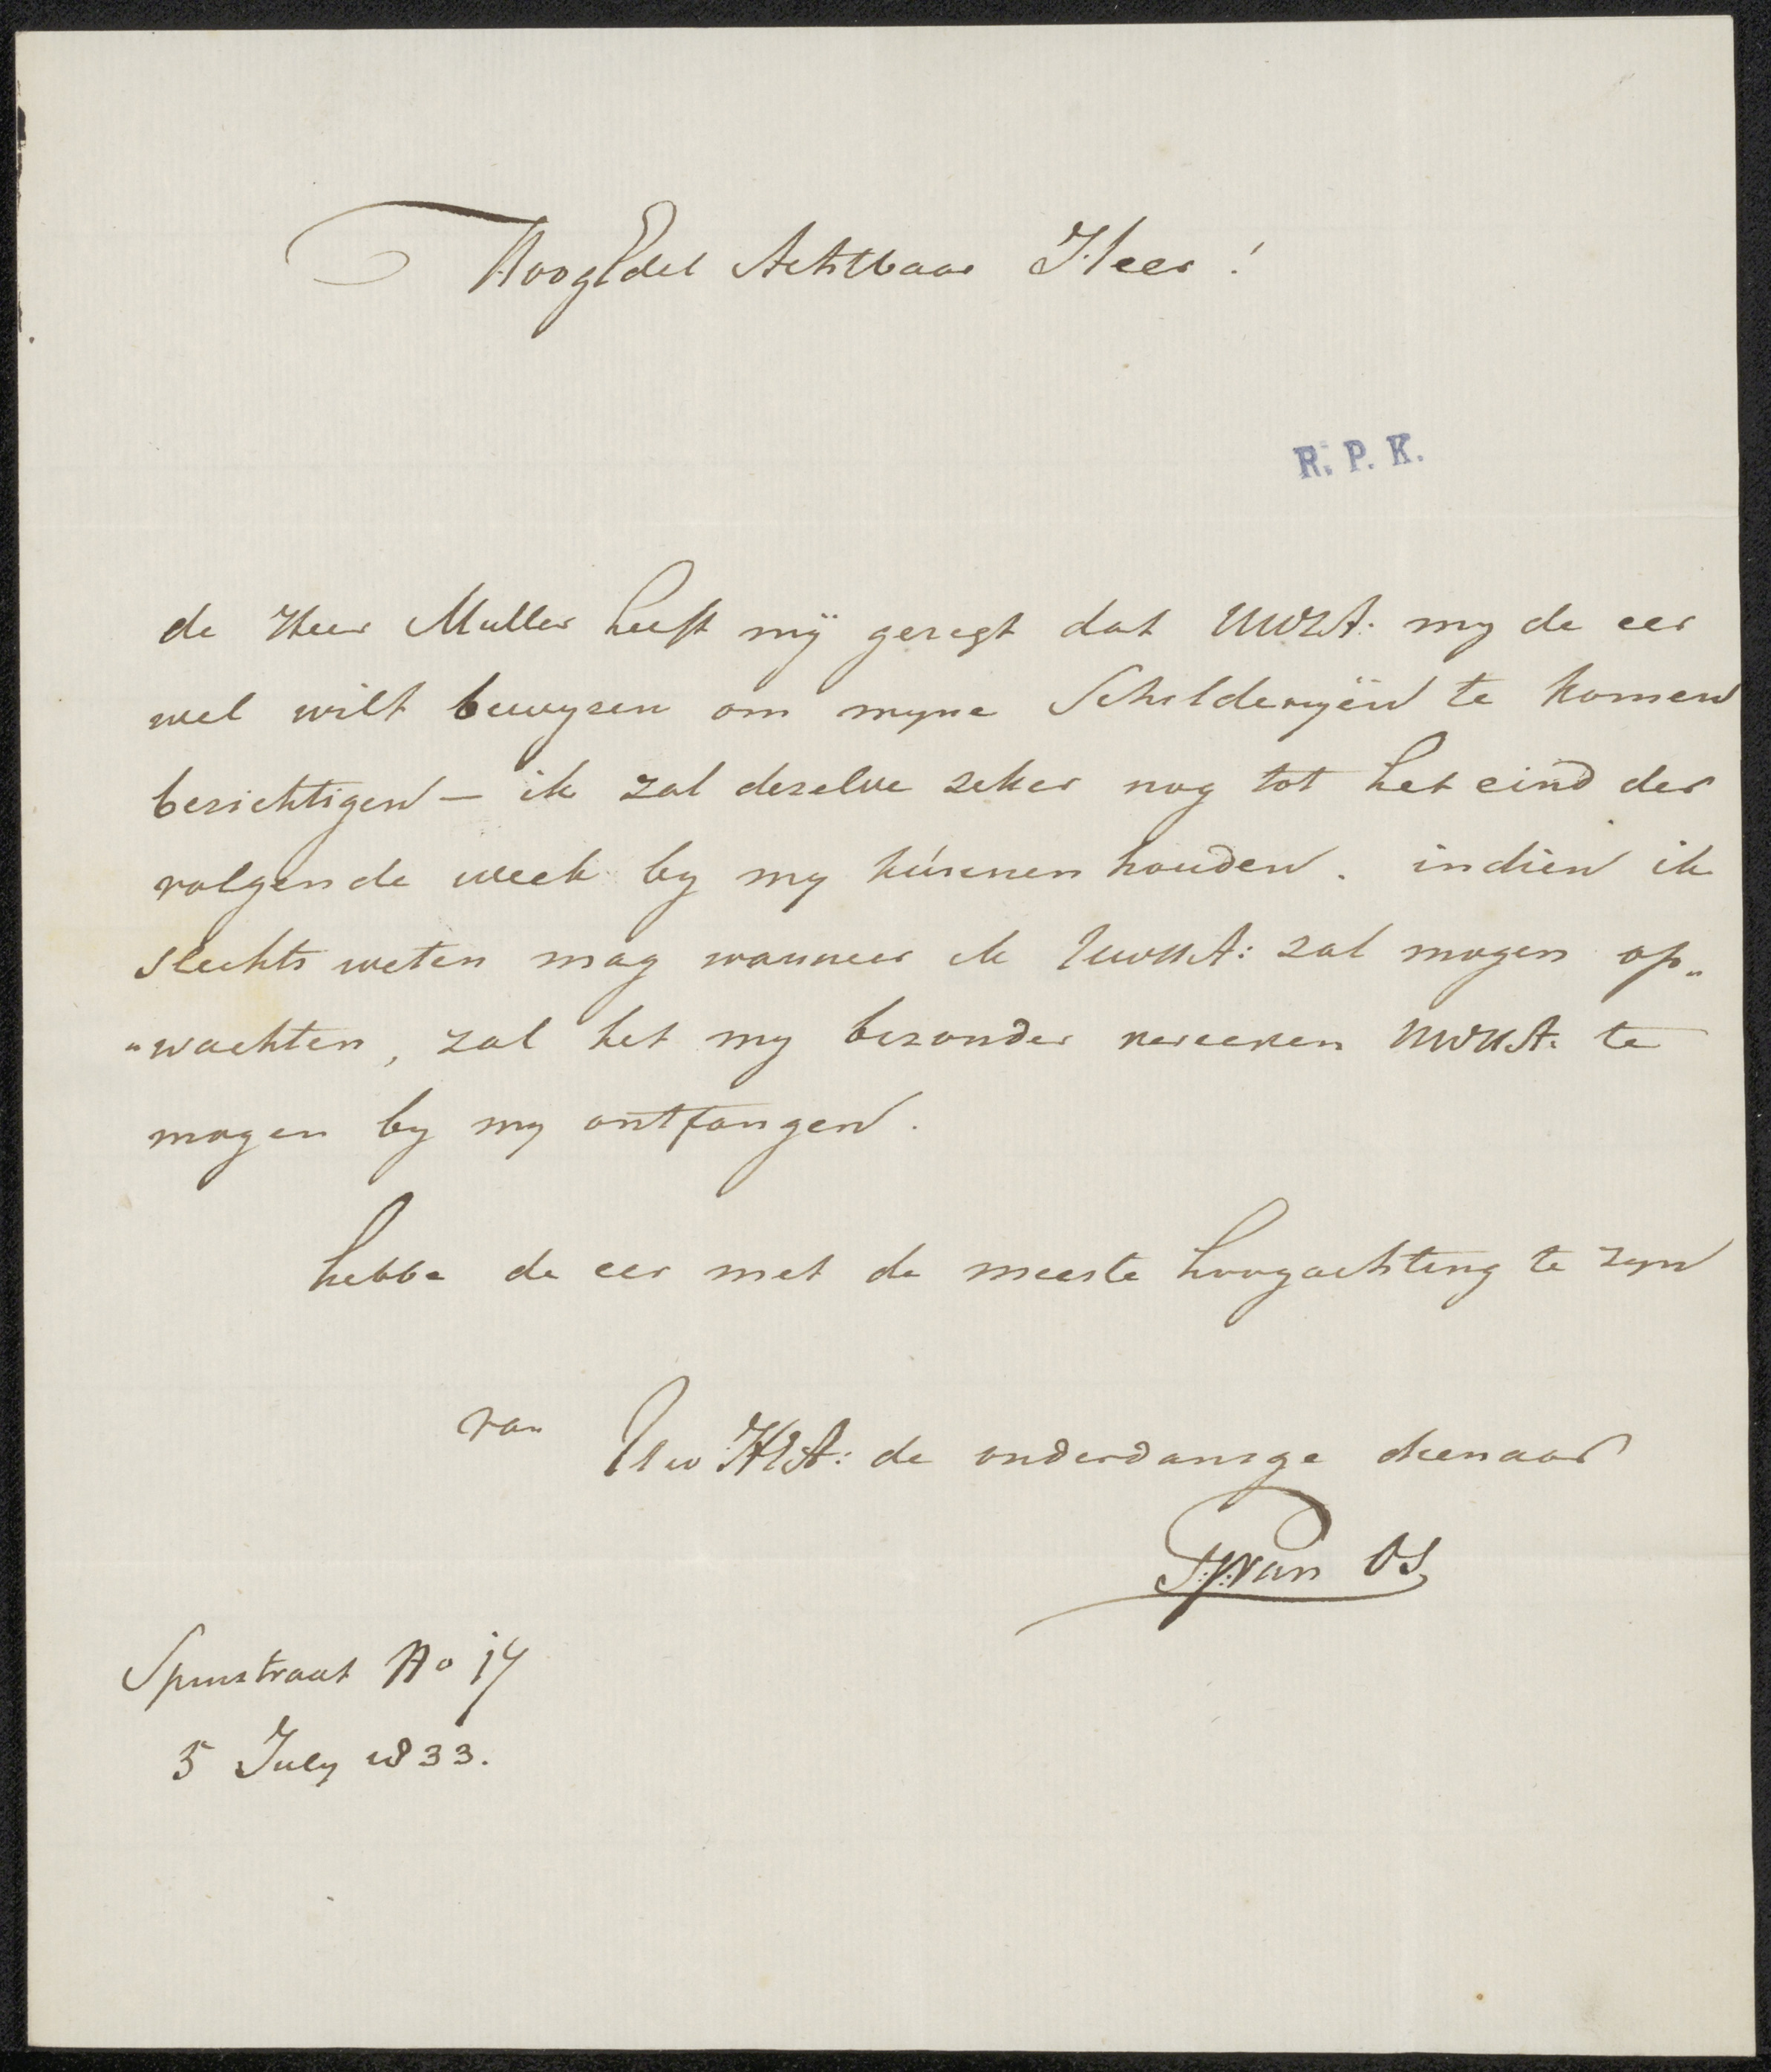 HoogEdel Achtbaar Heer!
R. P. K.
de Heer Muller heeft mÿ gezegt dat UWEA: my de eer
wel wilt bewyzen om myne Schilderyën te komen
bezichtigen — ik zal dezelve zeker nog tot het eind der
volgende week by my kúnnen houden. indien ik
slechts weten mag wanneer ik UWEA: zal mogen op„
„wachten, zal het my bezonder vereeren UWEA: te
mogen by my ontfangen.
hebbe de eer met de meeste hoogachting te zyn
van Uw HEA: de onderdanige dienaar
van Os
Spinstraat No 17
5 July 1833.